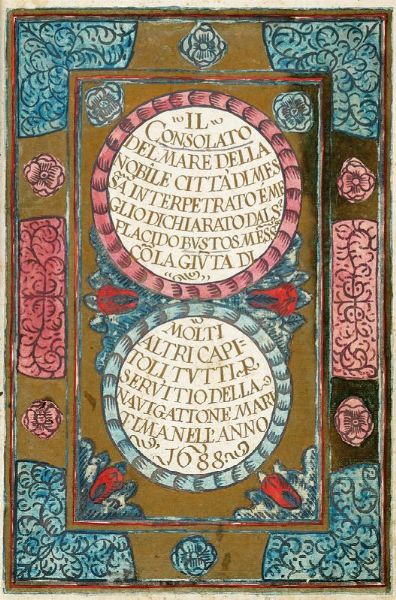 IL
CONSOLATO
DEL MARE DELLA
NOBILE CITTA DI MES
SA INTERPETRATO E ME
GLIO DICHIARATO DAL S.
PLACIDO BVSTOS MESS
CÕ LA GIVTA DI
MOLTI
ALTRI CAPI-
TOLI TVTTI P
SERVITIO DELLA
NAVIGATIONE MARI
TIMA NELL ANNO
1688